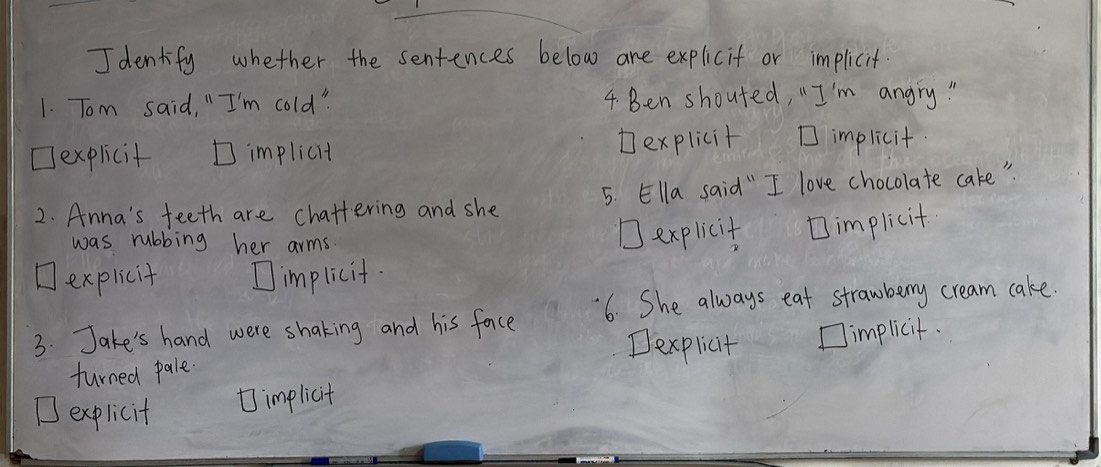 Identify whether the sentences below are explicit or implicit.
1. Tom said, "I'm cold".
explicit implicit
2. Anna's teeth are chattering and she
was rubbing her arms.
explicit implicit.
3. Jake's hand were shaking and his face
turned pale.
explicit implicit
4. Ben shouted, "I'm angry."
explicit implicit.
5. Ella said "I love chocolate cake".
explicit implicit.
6. She always eat strawberry cream cake.
explicit implicit.